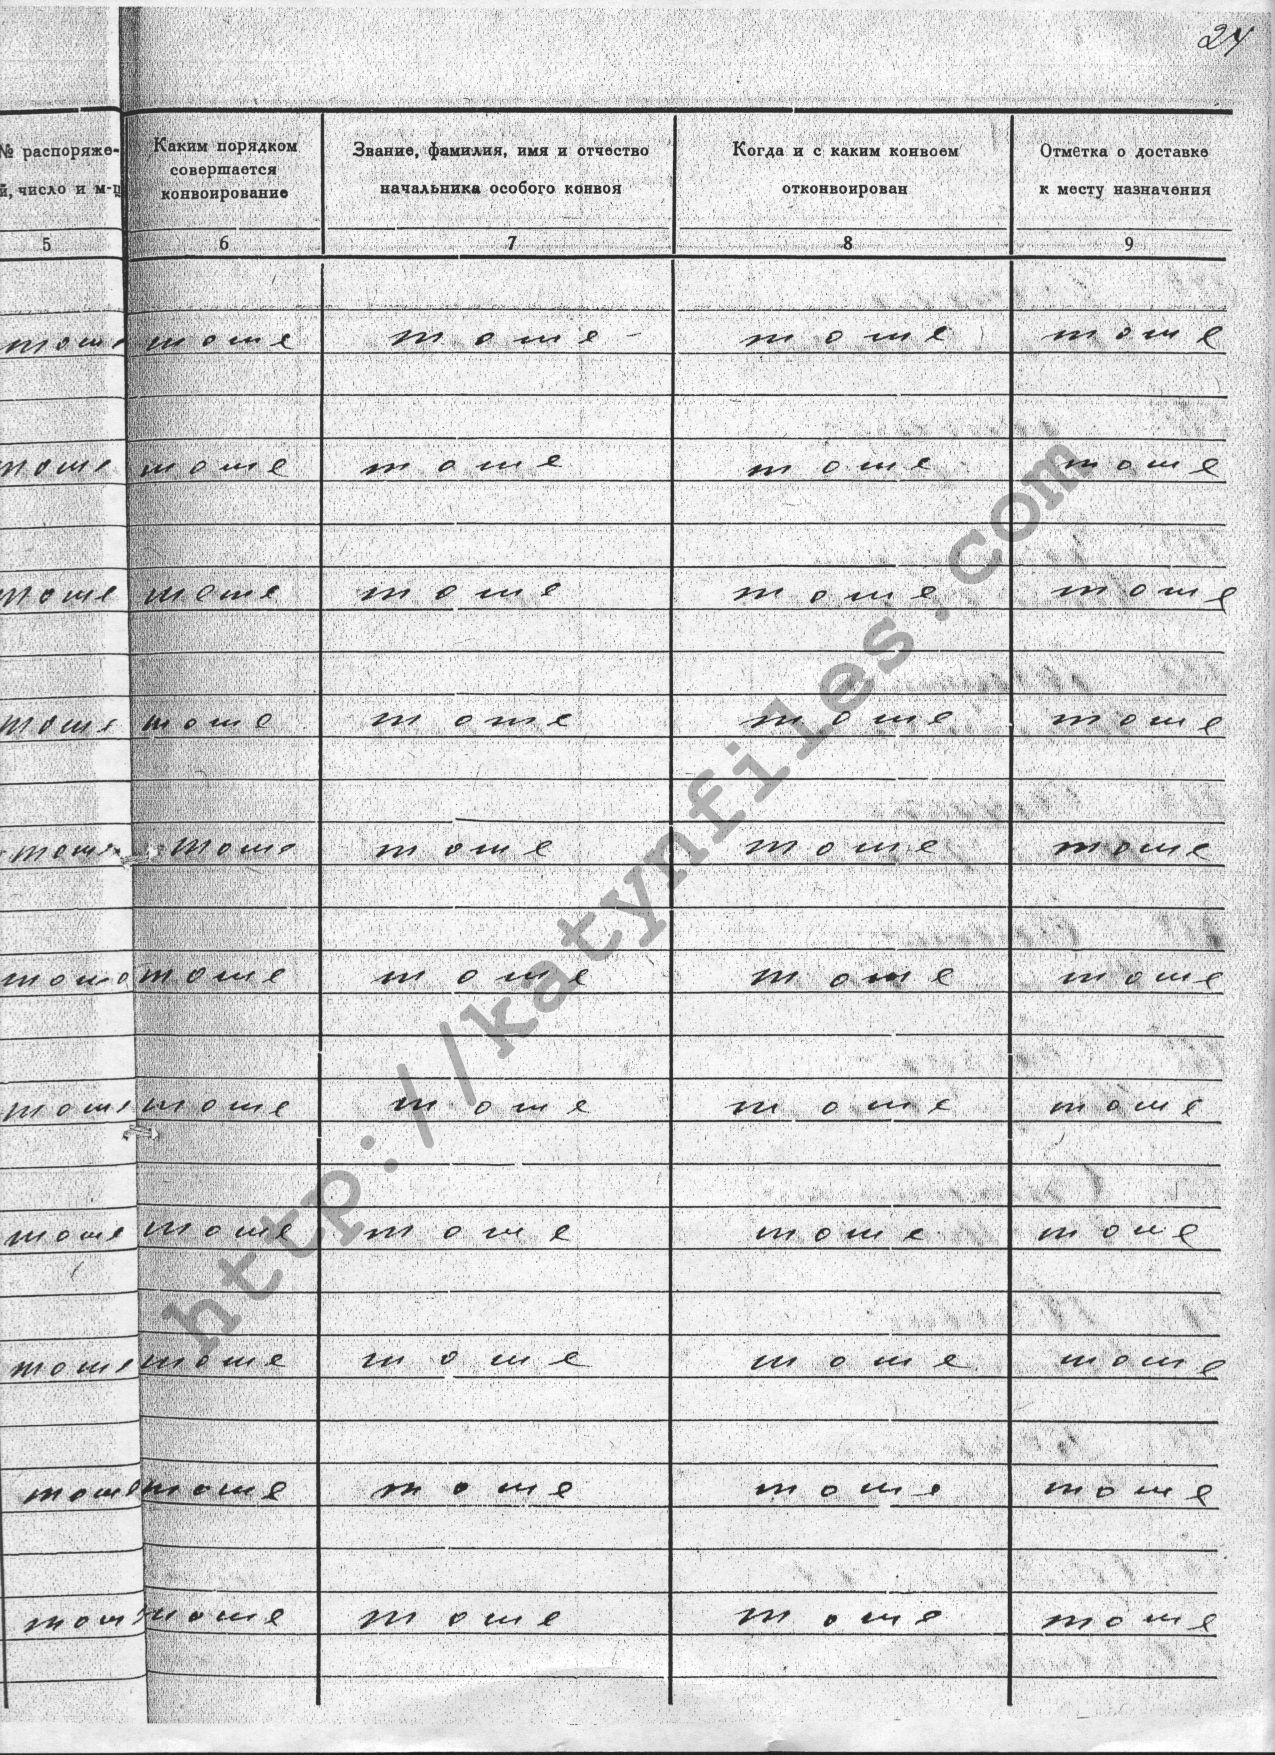 24
№ распоряже- Каким порядком Звание, фамилия, имя и отчество Когда и с каким конвоем Отметка о доставке
совершается
й, число и м-ц конвоирование начальника особого конвоя отконвоирован к месту назначения
5 6 7 8 9
тоже тоже тоже тоже тоже
тоже тоже тоже тоже тоже
тоже тоже тоже тоже тоже
тоже тоже тоже тоже тоже
тоже тоже тоже тоже тоже
тоже тоже тоже тоже тоже
тоже тоже тоже тоже тоже
тоже тоже тоже тоже тоже
тоже тоже тоже тоже тоже
тоже тоже тоже тоже тоже
тоже тоже тоже тоже тоже
http://katynfiles.com